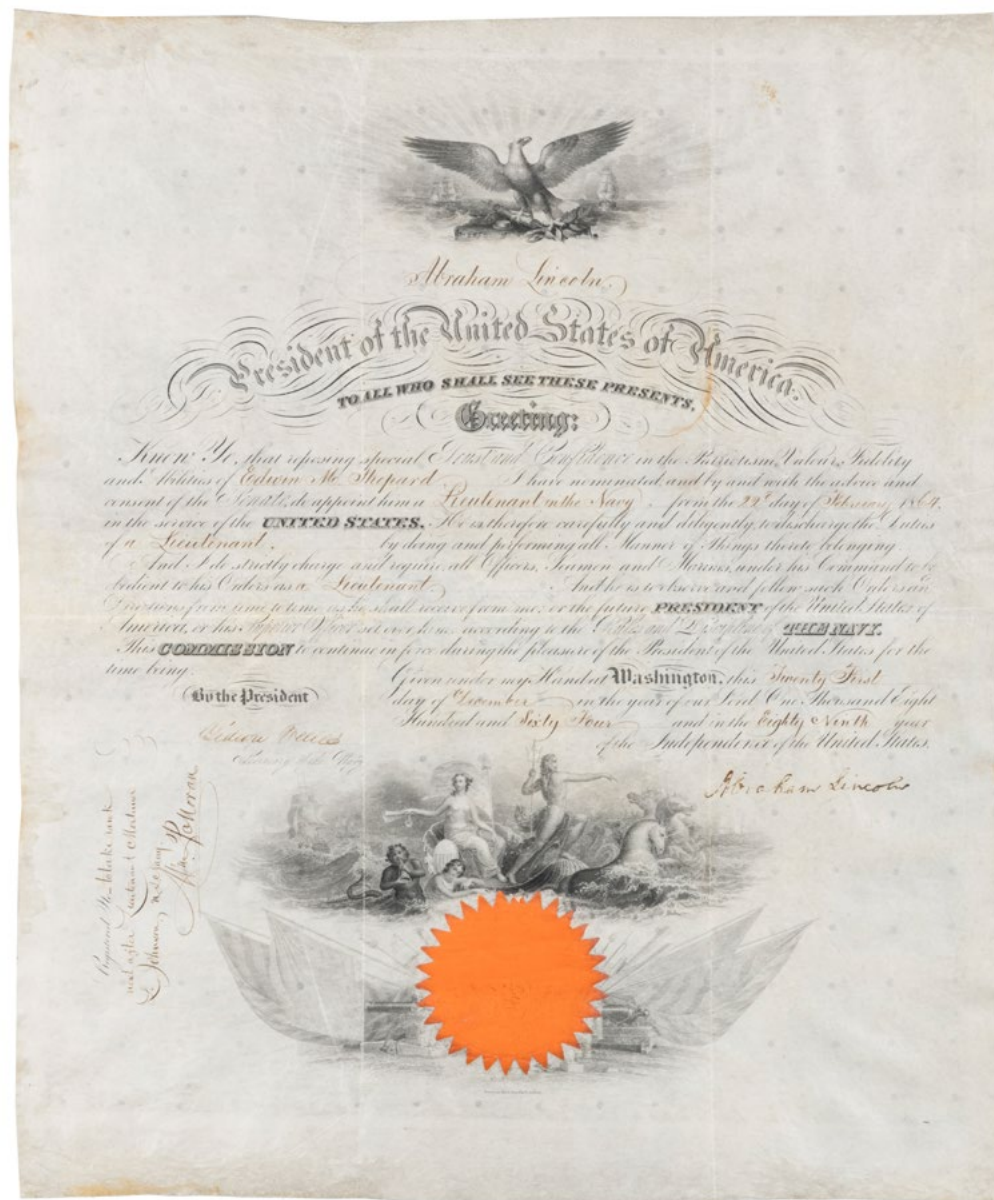 Abraham Lincoln,
President of the United States of America.
TO ALL WHO SHALL SEE THESE PRESENTS,
Greeting:
Know Ye, that reposing special Trust and Confidence in the Patriotism, Valour, Fidelity
and Abilities of Edwin M. Shepard I have nominated and by and with the advice and
consent of the Senate, do appoint him a Lieutenant in the Navy, from the 22d day of February 1864,
in the service of the UNITED STATES. He is therefore carefully and diligently to discharge the Duties
of a Lieutenant, by doing and performing all Manner of Things thereto belonging.
And I do strictly charge and require all Officers, Seamen and Marines, under his Command to be
bedient to his Orders as a Lieutenant And he is to observe and follow such Orders an
Directions from time to time as he shall receive from me; or the future PRESIDENT of the United States of
America, or his Superior Officer set over him, according to the Rules and Discipline of THE NAVY.
This COMMISSION to continue in force during the pleasure of the President of the United States for the
time being.
Given under my Hand at Washington, this Twenty First
day of December in the year of our Lord One Thousand Eight
Hundred and Sixty Four and in the Eighty Ninth year
of the Independence of the United States.
By the President
Gideon Welles
Secretary of the Navy
Abraham Lincoln
Registered To take rank
next after Lieutenant Mortimer
L. Johnson,